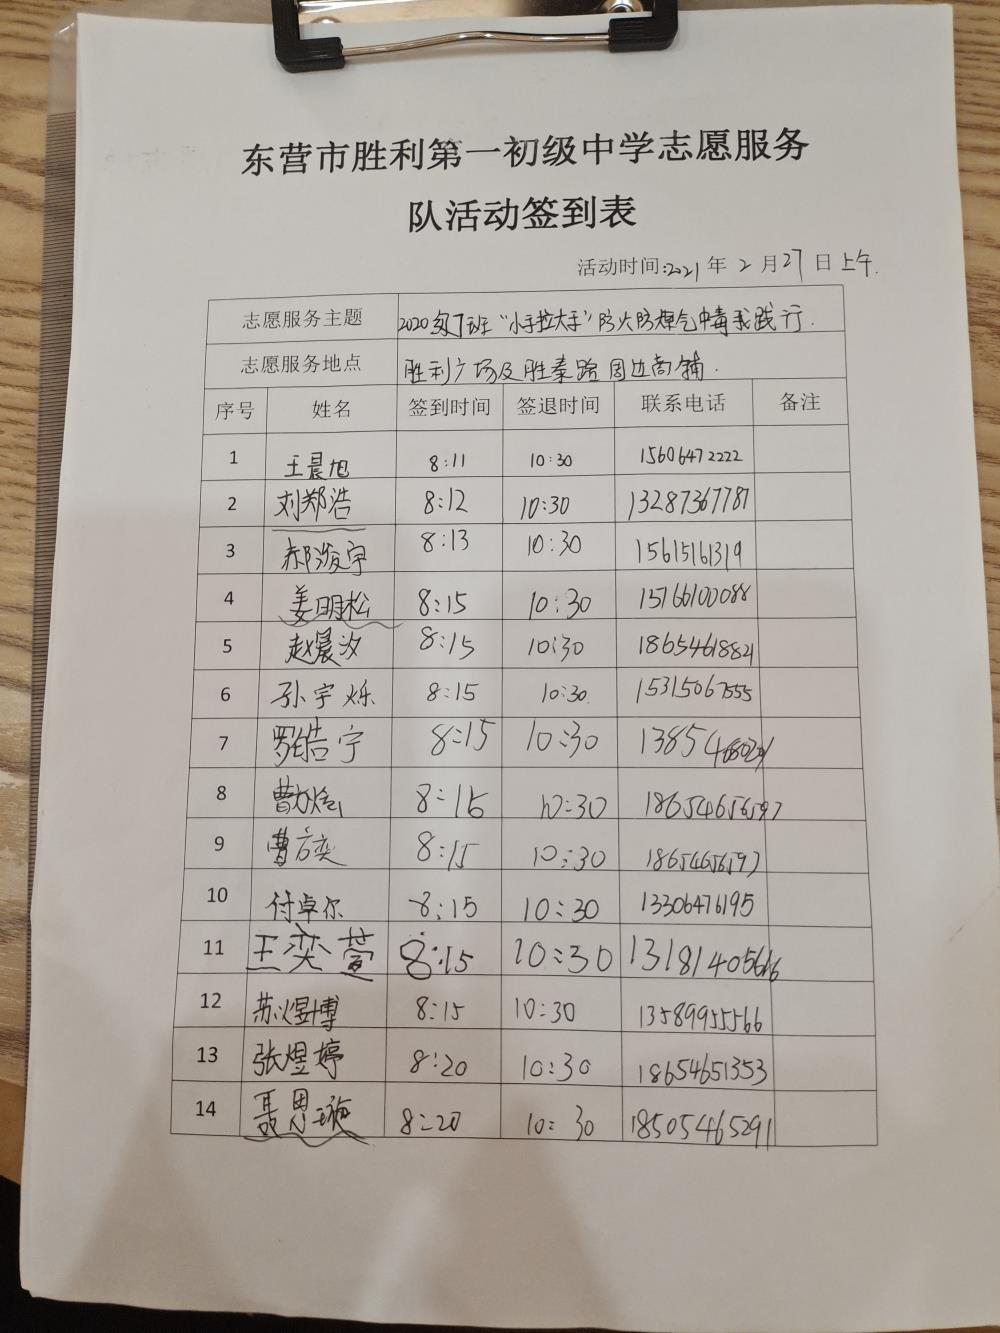 东营市胜利第一初级中学志愿服务
队活动签到表
活动时间:2021年2月27日上午.
志愿服务主题 2020级7班"小手拉大手"防火防煤气中毒我践行.
志愿服务地点 胜利广场及胜泰路周边商铺.
序号 姓名 签到时间 签退时间 联系电话 备注
1 王晨旭 8:11 10:30 15606472222
2 刘郑浩 8:12 10:30 13287367787
3 郝浚宇 8:13 10:30 15615161319
4 姜明松 8:15 10:30 15166100088
5 赵晨汐 8:15 10:30 18654618821
6 孙宇烁 8:15 10:30. 15315067555
7 罗皓宁 8:15 10:30
8 8:15 10:30 18654656597
9 曹方奕 8:15 10:30 18654656597
10 付卓尔 8:15 10:30 13306476195
11 王奕萱 8:15 10:30
12 苏煜博 8:15 10:30 13589955566
13 张煜婷 8:20 10:30 18654651353
14 聂思璇 8:20 10:30 18505465291